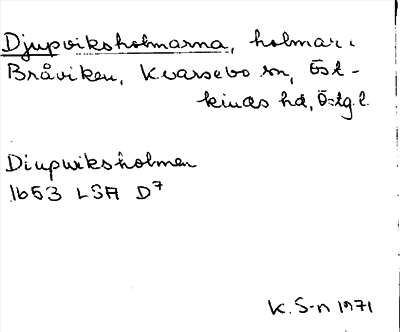 Djupviksholmarna, holmar i
Bråviken, Kvarsebo sn, Öst-
kinds hd, Östg.l.
Diupwiksholmen
1653 LSA D7
K. S-n 1971